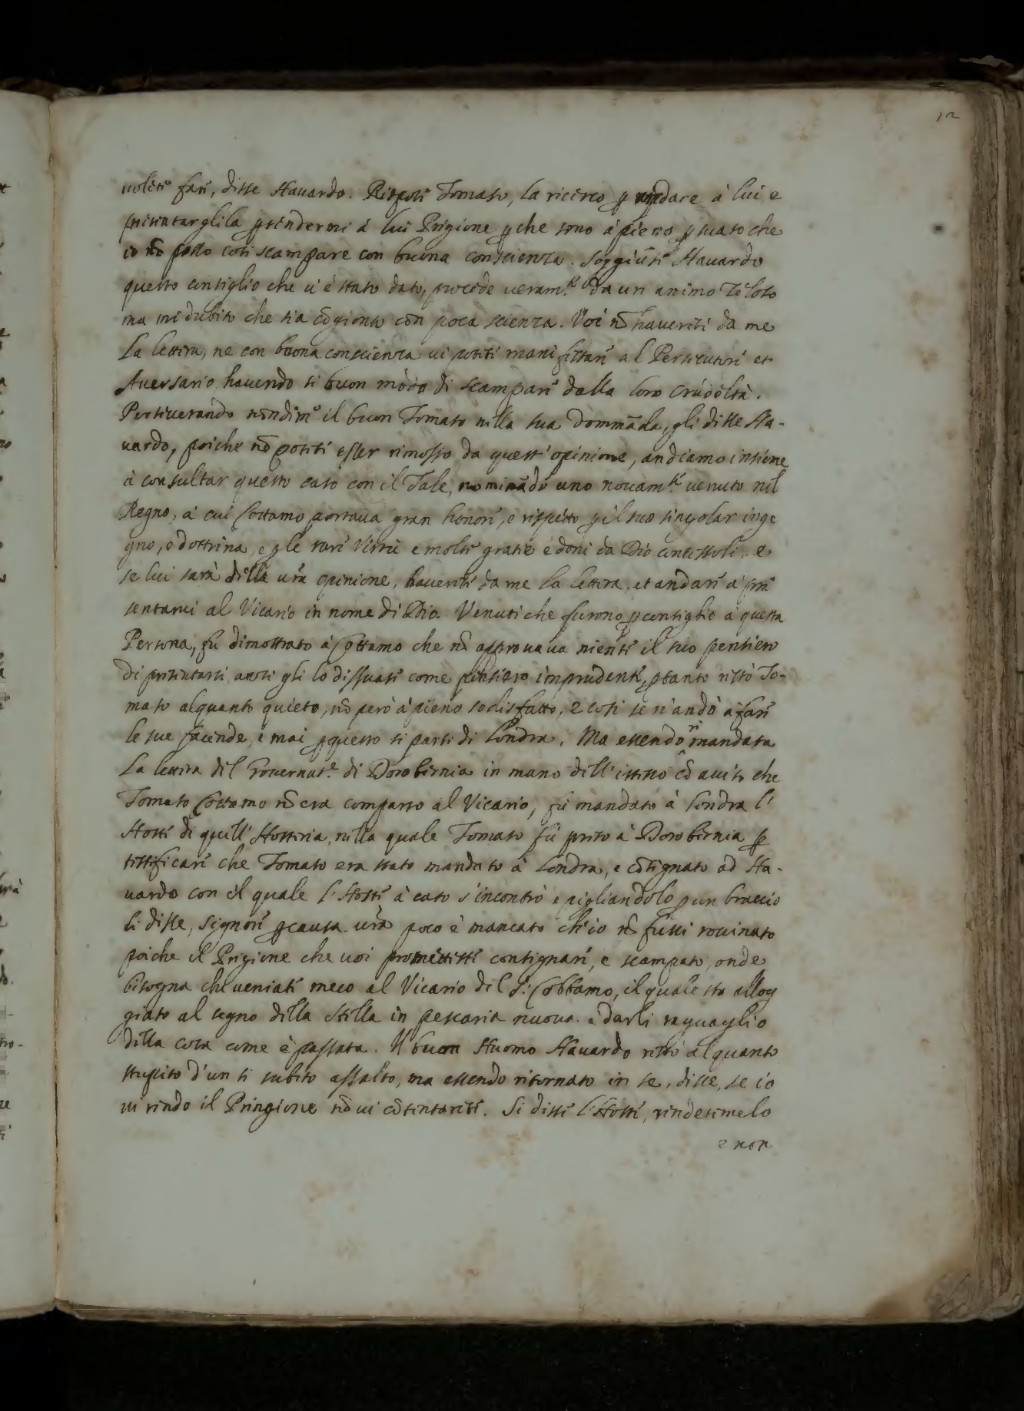 12
uoliti fari, disse Hauardo. Rispose Tomaso, la ricerco p andare à lui e
presentarglila p rendermi à lui Prigione p che sono à pieno p suaso che
io nõ posso così scampare con buona conscienza. Soggiunse Hauardo
questo consiglio che u'è stato dato, procede ueram.te da un animo Zeloso
ma mi dubito che sia cõgionto con poca scienza. Voi nõ hauereti da me
La lettera, ne con buona conscienza ui potiti manifestari al Persecutori et
Auersario, hauendo si buon modo di scampari dalla loro crudeltà.
Perseuerando nõdim.o il buon Tomaso nella sua dommãda, gli disse Ha-
uardo, poiche nõ potiti esser rimosso da quest'opinione, andiamo insieme
à consultar questo caso con il Tale, nominãdo uno nouam.te uenuto nel
Regno, à cui Cottamo portaua gran honori, e rispetto p il suo singolar inge
gno, e dottrina, e p le rare Virtù e molte gratie e doni da Dio
se lui sarà della ura opinione, hauereti da me la lettera, et andari à pre
sentarui al Vicario in nome di Dio. Venuti che furono p consiglio à questa
Persona, fù dimostrato à Cottamo che nõ approuaua nienti il suo pensiero
di presentarsi, anzi gli lo dissuase come pensiero imprudenti, p tanto restò To-
maso alquanto quieto, nõ però à pieno sodisfatto, e così se n'andò à fari
le sue facende, e mai p questo si parti di Londra. Ma essendo rimandata
La lettera del Gouernat.e di Dorobernia in mano dell'istesso cõ auiso che
Tomaso Cottamo nõ era comparso al Vicario, fù mandato à Londra l'
Hosti di quell'Hosteria, nella quale Tomaso fù preso à Dorobernia p
testificari che Tomaso era stato mandato à Londra, e cõsignato ad Ha-
uardo con il quale l'Hosti à caso s'incontrò e pigliandolo p un braccio
li disse, Signori p causa ura poco è mancato ch'io nõ fussi rouinato
poiche il Prigione che uoi promettesti consignari, e scampato, onde
bisogna che ueniati meco al Vicario del S.r Cobbamo, il quale sta allog
giato al segno della Stella in pescaria nuoua à darli raguaglio
della cosa come è passata. Il buon Huomo Hauardo restò alquanto
stupito d'un si subito assalto, ma essendo ritornato in se, disse, se io
ui rendo il Pringione nõ ui cõtentareti. Si disse l'Hosti, rendetemelo
e non